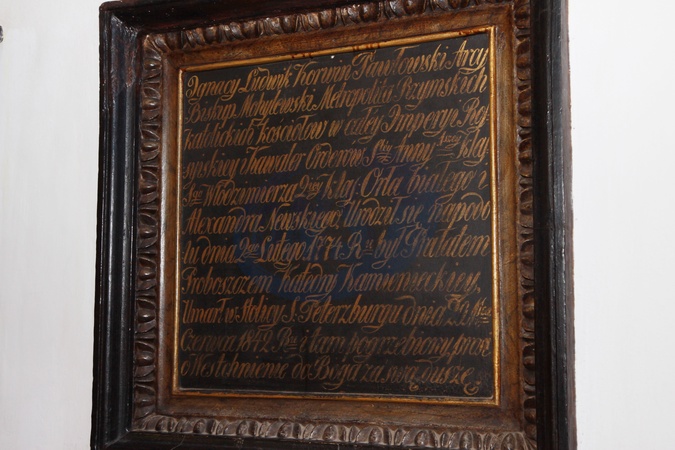 Ignacy Ludwik Korwin Pawłowski Arcy
Biskup Mohylewski Metropolita Rzymskich
Katolickich kościołow w całey Imperyi Ros
syiskiey i Kawaler Orderow S<sup>tey</sup> Anny 1<sup>szey</sup> kla
S<sup>go</sup> Włodzimierza 2<sup>iey</sup> kla: Orła białego i
Alexandra Newskiego, Urodził się na podo
lu dnia 2<sup>go</sup> Lutego 1774 R<sup>u</sup> był Prałatem
Proboszczem Katedry Kamienieckiey,
Umarł w Stolicy S. Peterzburgu dnia
Czerwca 1842 R<sup>u</sup> i tam pogrzebiony, prosi
o Westchnienie do Boga za swą duszę